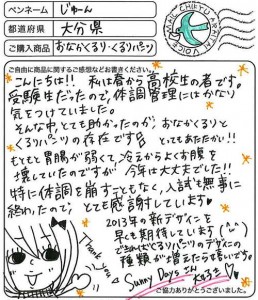 ペンネーム じゅーん
都道府県 大分県
ご購入商品 おなかくるり・くるりパンツ
ご自由に商品に関するご感想などお書きください。
こんにちは!! 私は春から高校生の者です。
受験生だったので、体調管理にはかなり
気をつけていました。
そんな中とても助かったのが、おなかくるりと
くるりパンツの存在です
とってもあたたかい!!
もともと胃腸が弱くて、冷えからよくお腹
を壊していたのですが 今年は大丈夫でした!!
特に体調を崩すこともなく、入試も無事に
終わったので、とても感謝しています
2013年の新デザインを
早くも期待しています(^^)
できればくるりパンツのデザインの
種類が増えたら嬉しいです。
Thank you
Sunny Daysさん
ご協力ありがとうございました。